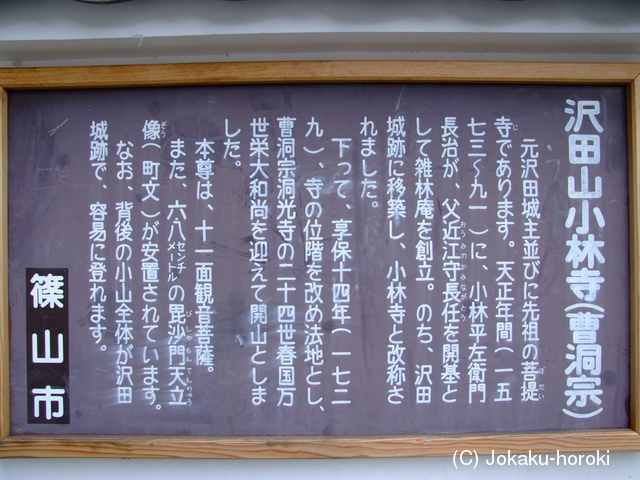 沢田山小林寺（曹洞宗）
元沢田城主並びに先祖の菩提
寺であります。天正年間（一五
七三〜九一）に、小林平左衛門
長治が、父近江守長任を開基と
して雑林庵を創立。のち、沢田
城跡に移築し、小林寺と改称さ
れました。
下って、享保十四年（一七二
九）、寺の位階を改め法地とし、
曹洞宗洞光寺の二十四世春国万
世栄大和尚を迎えて開山としま
した。
本尊は、十一面観音菩薩。
また、六八センチメートルの毘沙門天立
像（町文）が安置されています。
なお、背後の小山全体が沢田
城跡で、容易に登れます。
篠山市
(C) Jokaku-horoki